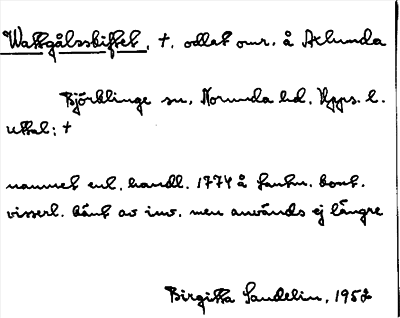 Wattgålsskiftet, †, odlat omr. å Axlunda
Björklinge sn, Norunda hd, Upps. l.
uttal: †
namnet enl. handl. 1774 å lantm. kont.
visserl. känt av inv. men används ej längre
Birgitta Sandelin, 1952